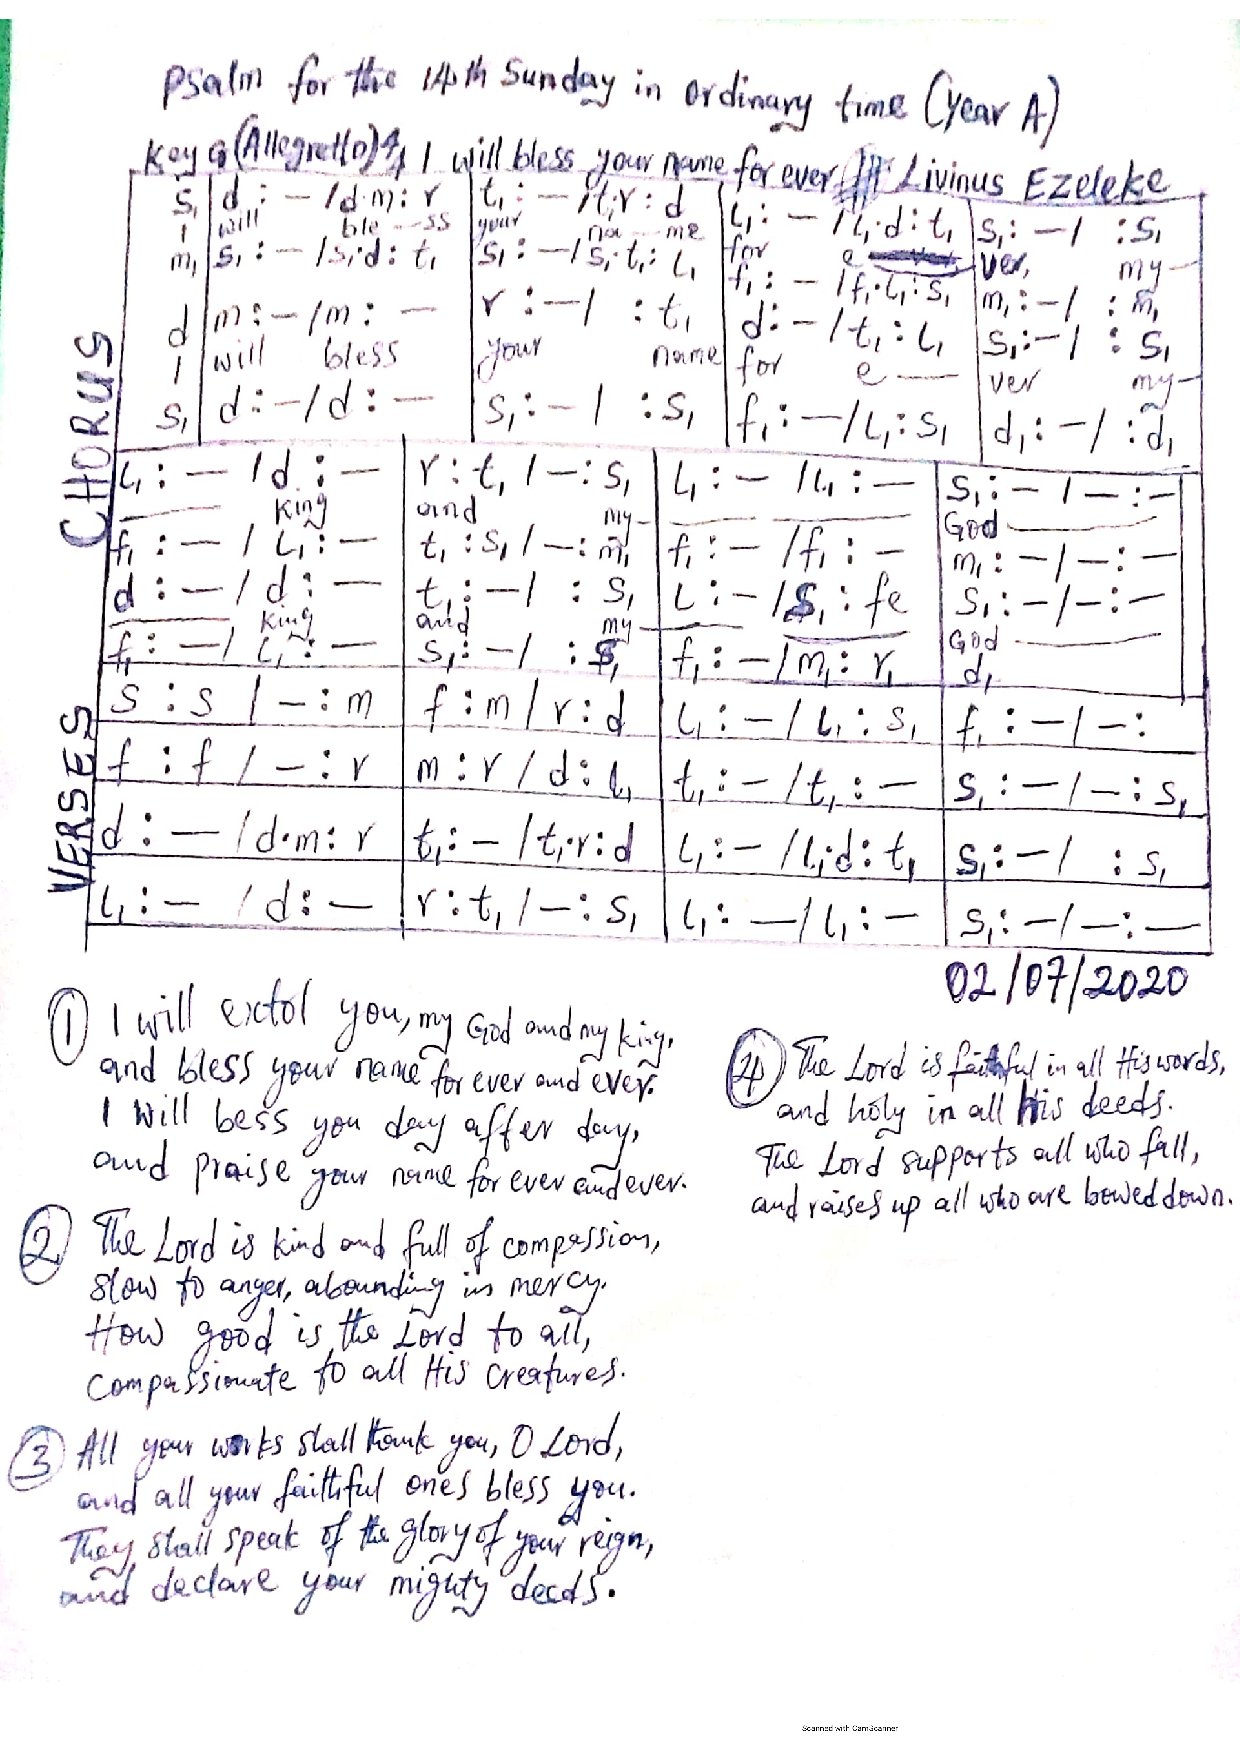 Psalm for the 14th Sunday in ordinary time (Year A)
Key G (Allegretto) 4/4 I will bless your name for ever Livinus Ezeleke
CHORUS
s₁ | d : — / d·m : r | t₁ : — / t₁·r : d | l₁ : — / l₁·d : t₁ | s₁ : — / : s₁
I | will ble — ss | your na — me | for e | ver, my —
m₁ | s₁ : — / s₁·d : t₁ | s₁ : — / s₁·t₁ : l₁ | f₁ : — / f₁·l₁ : s₁ | m₁ : — / : m₁
d | m : — / m : — | r : — / : t₁ | d : — / t₁ : l₁ | s₁ : — / : s₁
I | will bless | your name | for e — | ver my —
s₁ | d : — / d : — | s₁ : — / : s₁ | f₁ : — / l₁ : s₁ | d₁ : — / : d₁
l₁ : — / d : — | r : t₁ / — : s₁ | l₁ : — / l₁ : — | s₁ : — / — : —
— King | and my — | — — | God —
f₁ : — / l₁ : — | t₁ : s₁ / — : m₁ | f₁ : — / f₁ : — | m₁ : — / — : —
d : — / d : — | t₁ : — / : s₁ | l : — / s₁ : fe | s₁ : — / — : —
— King | and my — | — | God —
f₁ : — / l₁ : — | s₁ : — / : s₁ | f₁ : — / m₁ : r₁ | d₁
VERSES
s : s / — : m | f : m / r : d | l₁ : — / l₁ : s₁ | f₁ : — / — :
f : f / — : r | m : r / d : l₁ | t₁ : — / t₁ : — | s₁ : — / — : s₁
d : — / d·m : r | t₁ : — / t₁·r : d | l₁ : — / l₁·d : t₁ | s₁ : — / : s₁
l₁ : — / d : — | r : t₁ / — : s₁ | l₁ : — / l₁ : — | s₁ : — / — : —
02/07/2020
① I will extol you, my God and my king,
and bless your name for ever and ever.
I will bess you day after day,
and praise your name for ever and ever.
② The Lord is kind and full of compassion,
slow to anger, abounding in mercy.
How good is the Lord to all,
compassionate to all His creatures.
③ All your works shall thank you, O Lord,
and all your faithful ones bless you.
They shall speak of the glory of your reign,
and declare your mighty deeds.
④ The Lord is faithful in all His words,
and holy in all His deeds.
The Lord supports all who fall,
and raises up all who are bowed down.
Scanned with CamScanner